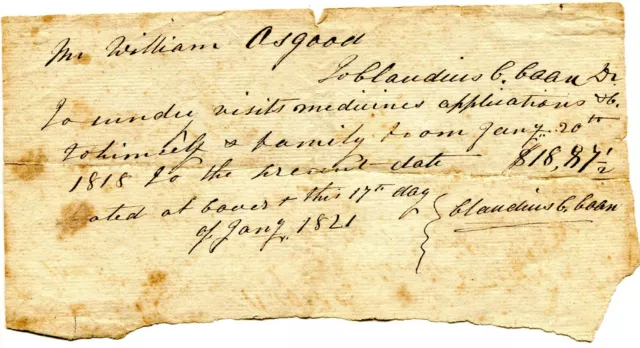 Mr William Osgood
To Claudius C. Coan Dr
To sundry visits medicines applications &c.
to himself & family from Jany. 20th
1818 to the present date $18,87½
Dated at Dover this 17th day
of Jany. 1821
Claudius C. Coan